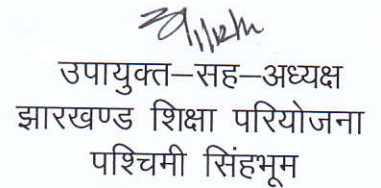 उपायुक्त–सह–अध्यक्ष
झारखण्ड शिक्षा परियोजना
पश्चिमी सिंहभूम